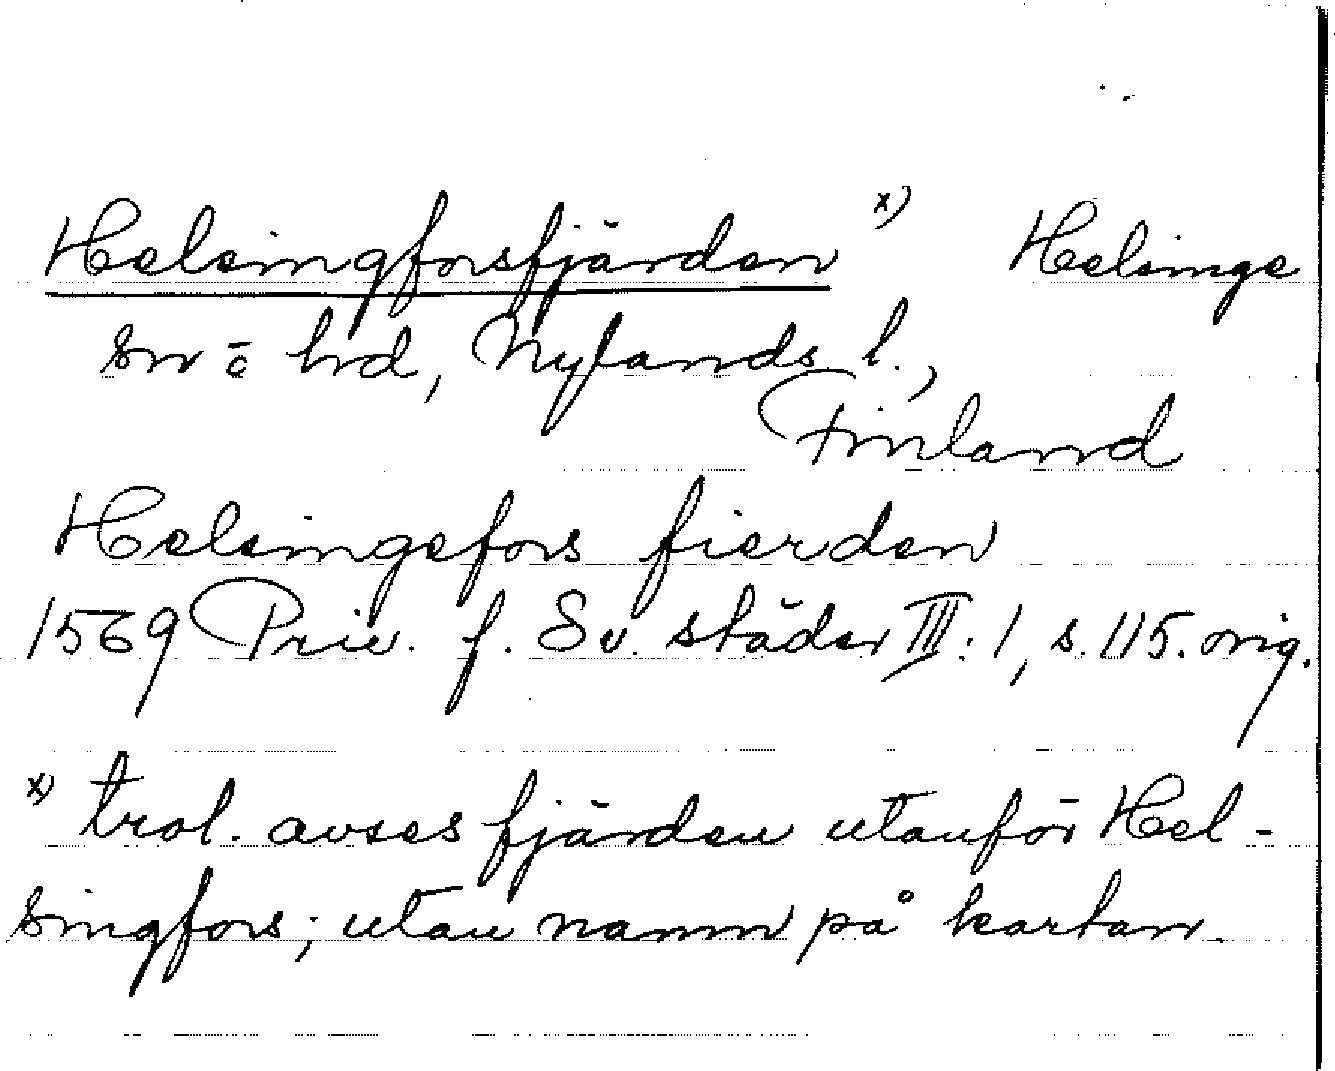 Helsingforsfjärden x) Helsinge
sn o hd, Nylands l.,
Finland
Helsingefors fierden
1569 Priv. f. Sv. städer III:1, s. 115. orig.
x) trol. avses fjärden utanför Hel-
singfors; utan namn på kartan.